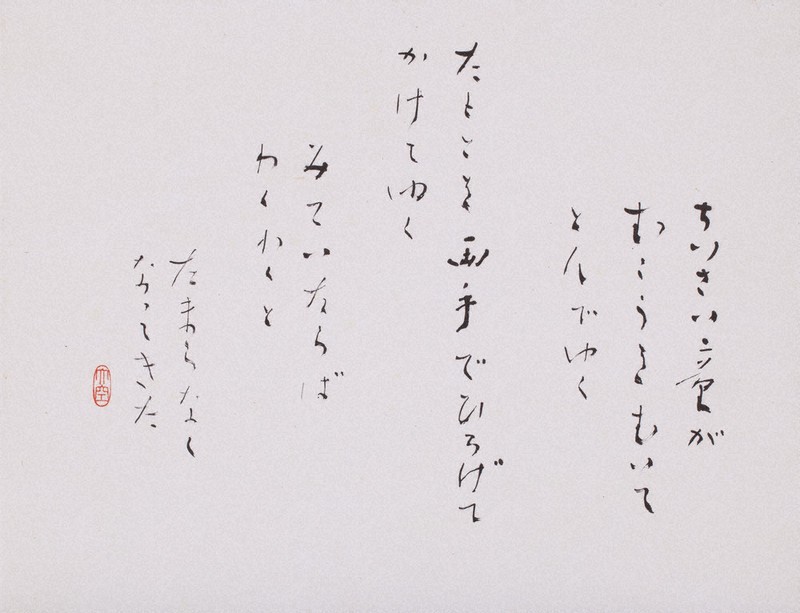 ちいさい童が
むこうをむいて
とんでゆく
たもとを両手でひろげて
かけてゆく
みていたらば
わくわくと
たまらなく
なってきた